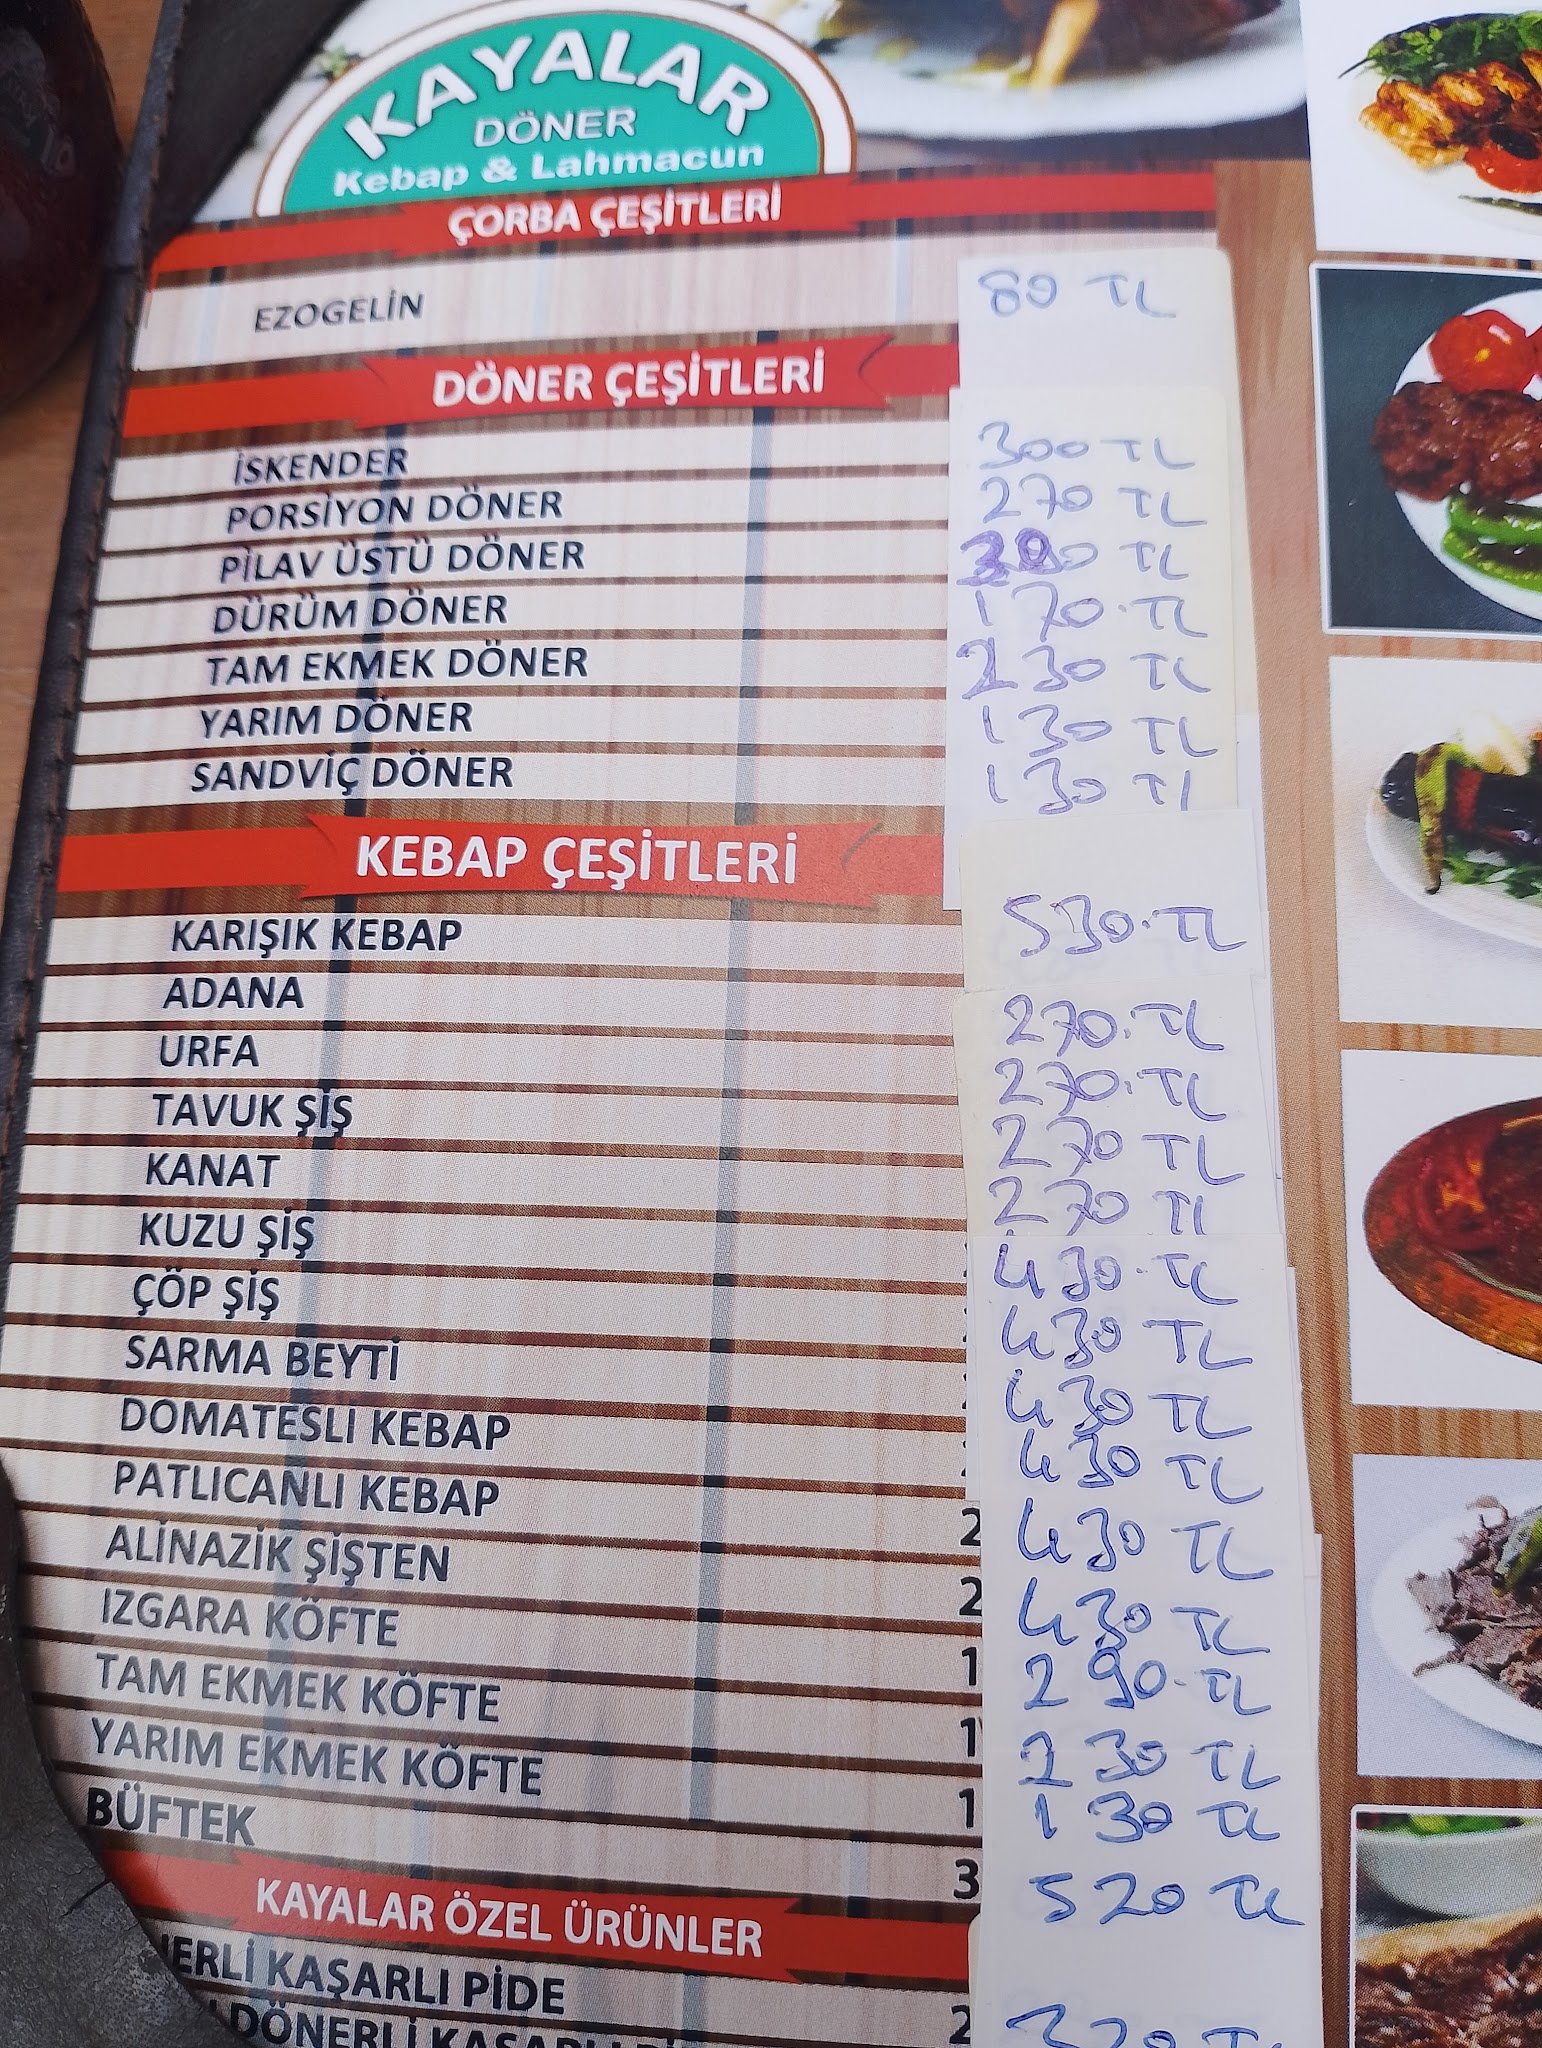 KAYALAR
DÖNER
Kebap & Lahmacun
ÇORBA ÇEŞİTLERİ
EZOGELİN 80 TL
DÖNER ÇEŞİTLERİ
İSKENDER 300 TL
PORSİYON DÖNER 270 TL
PİLAV ÜSTÜ DÖNER TL
DÜRÜM DÖNER 170.TL
TAM EKMEK DÖNER 230 TL
YARIM DÖNER 130 TL
SANDVİÇ DÖNER 130 TL
KEBAP ÇEŞİTLERİ
KARIŞIK KEBAP 530.TL
ADANA 270.TL
URFA 270.TL
TAVUK ŞİŞ 270 TL
KANAT 270 TL
KUZU ŞİŞ 430.TL
ÇÖP ŞİŞ 430 TL
SARMA BEYTİ 430 TL
DOMATESLİ KEBAP 430 TL
PATLICANLI KEBAP 2 430 TL
ALİNAZİK ŞİŞTEN 2 430 TL
IZGARA KÖFTE 1 290.TL
TAM EKMEK KÖFTE 1 230 TL
YARIM EKMEK KÖFTE 1 130 TL
BÜFTEK 3 520 TL
KAYALAR ÖZEL ÜRÜNLER
KAŞARLI PİDE 2 320 TL
DÖNERLİ